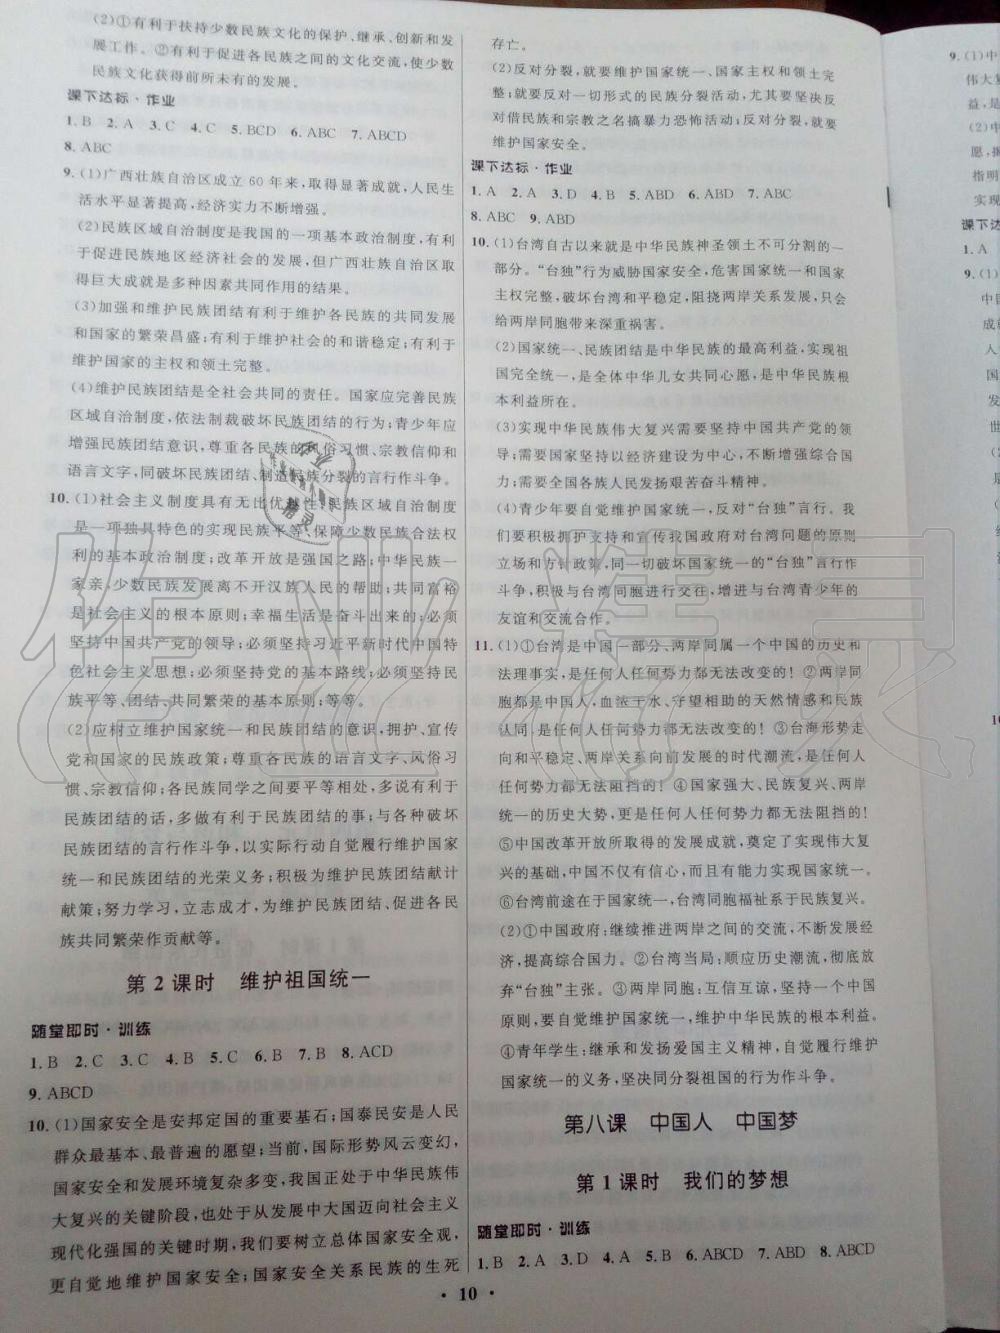 (2)①有利于扶持少数民族文化的保护、继承、创新和发
展工作。②有利于促进各民族之间的文化交流,使少数
民族文化获得前所未有的发展。
课下达标·作业
1. B  2. A  3. C  4. C  5. BCD  6. ABC  7. ABCD
8. ABC
9. (1)广西壮族自治区成立 60 年来,取得显著成就,人民生
活水平显著提高,经济实力不断增强。
(2)民族区域自治制度是我国的一项基本政治制度,有利
于促进民族地区经济社会的发展,但广西壮族自治区取
得巨大成就是多种因素共同作用的结果。
(3)加强和维护民族团结有利于维护各民族的共同发展
和国家的繁荣昌盛;有利于维护社会的和谐稳定;有利于
维护国家的主权和领土完整。
(4)维护民族团结是全社会共同的责任。国家应完善民族
区域自治制度,依法制裁破坏民族团结的行为;青少年应
增强民族团结意识,尊重各民族的风俗习惯、宗教信仰和
语言文字,同破坏民族团结、制造民族分裂的言行作斗争。
10. (1)社会主义制度具有无比优越性;民族区域自治制度
是一项独具特色的实现民族平等、保障少数民族合法权
利的基本政治制度;改革开放是强国之路;中华民族一
家亲,少数民族发展离不开汉族人民的帮助;共同富裕
是社会主义的根本原则;幸福生活是奋斗出来的;必须
坚持中国共产党的领导;必须坚持习近平新时代中国特
色社会主义思想;必须坚持党的基本路线;必须坚持民
族平等、团结、共同繁荣的基本原则;等等。
(2)应树立维护国家统一和民族团结的意识,拥护、宣传
党和国家的民族政策;尊重各民族的语言文字、风俗习
惯、宗教信仰;各民族同学之间要平等相处,多说有利于
民族团结的话,多做有利于民族团结的事;与各种破坏
民族团结的言行作斗争,以实际行动自觉履行维护国家
统一和民族团结的光荣义务;积极为维护民族团结献计
献策;努力学习,立志成才,为维护民族团结、促进各民
族共同繁荣作贡献等。
第 2 课时  维护祖国统一
随堂即时·训练
1. B  2. C  3. C  4. B  5. C  6. B  7. B  8. ACD
9. ABCD
10. (1)国家安全是安邦定国的重要基石;国泰民安是人民
群众最基本、最普遍的愿望;当前,国际形势风云变幻,
国家安全和发展环境复杂多变,我国正处于中华民族伟
大复兴的关键阶段,也处于从发展中大国迈向社会主义
现代化强国的关键时期,我们要树立总体国家安全观,
更自觉地维护国家安全;国家安全关系民族的生死
存亡。
(2)反对分裂,就要维护国家统一、国家主权和领土完
整;就要反对一切形式的民族分裂活动,尤其要坚决反
对借民族和宗教之名搞暴力恐怖活动;反对分裂,就要
维护国家安全。
课下达标·作业
1. A  2. A  3. D  4. B  5. ABD  6. ABD  7. ABCD
8. ABC  9. ABD
10. (1)台湾自古以来就是中华民族神圣领土不可分割的一
部分。“台独”行为威胁国家安全,危害国家统一和国家
主权完整,破坏台湾和平稳定,阻挠两岸关系发展,只会
给两岸同胞带来深重祸害。
(2)国家统一、民族团结是中华民族的最高利益,实现祖
国完全统一,是全体中华儿女共同心愿,是中华民族根
本利益所在。
(3)实现中华民族伟大复兴需要坚持中国共产党的领
导;需要国家坚持以经济建设为中心,不断增强综合国
力;需要全国各族人民发扬艰苦奋斗精神。
(4)青少年要自觉维护国家统一,反对“台独”言行。我
们要积极拥护支持和宣传我国政府对台湾问题的原则
立场和方针政策,同一切破坏国家统一的“台独”言行作
斗争,积极与台湾同胞进行交往,增进与台湾青少年的
友谊和交流合作。
11. (1)①台湾是中国一部分、两岸同属一个中国的历史和
法理事实,是任何人任何势力都无法改变的!②两岸同
胞都是中国人,血浓于水、守望相助的天然情感和民族
认同,是任何人任何势力都无法改变的!③台海形势走
向和平稳定、两岸关系向前发展的时代潮流,是任何人
任何势力都无法阻挡的!④国家强大、民族复兴、两岸
统一的历史大势,更是任何人任何势力都无法阻挡的!
⑤中国改革开放所取得的发展成就,奠定了实现伟大复
兴的基础,中国不仅有信心,而且有能力实现国家统一。
⑥台湾前途在于国家统一,台湾同胞福祉系于民族复兴。
(2)①中国政府:继续推进两岸之间的交流,不断发展经
济,提高综合国力。②台湾当局:顺应历史潮流,彻底放
弃“台独”主张。③两岸同胞:互信互谅,坚持一个中国
原则,要自觉维护国家统一,维护中华民族的根本利益。
④青年学生:继承和发扬爱国主义精神,自觉履行维护
国家统一的义务,坚决同分裂祖国的行为作斗争。
第八课  中国人  中国梦
第 1 课时  我们的梦想
随堂即时·训练
1. B  2. A  3. D  4. A  5. B  6. ABCD  7. ABD  8. ABCD
· 10 ·
9. (1)中
伟大复
益,是
(2)中
愿,振
指明
实现
课下达
1. A
9. (1)
中国
成就
人
国
发
世
是
作业精灵